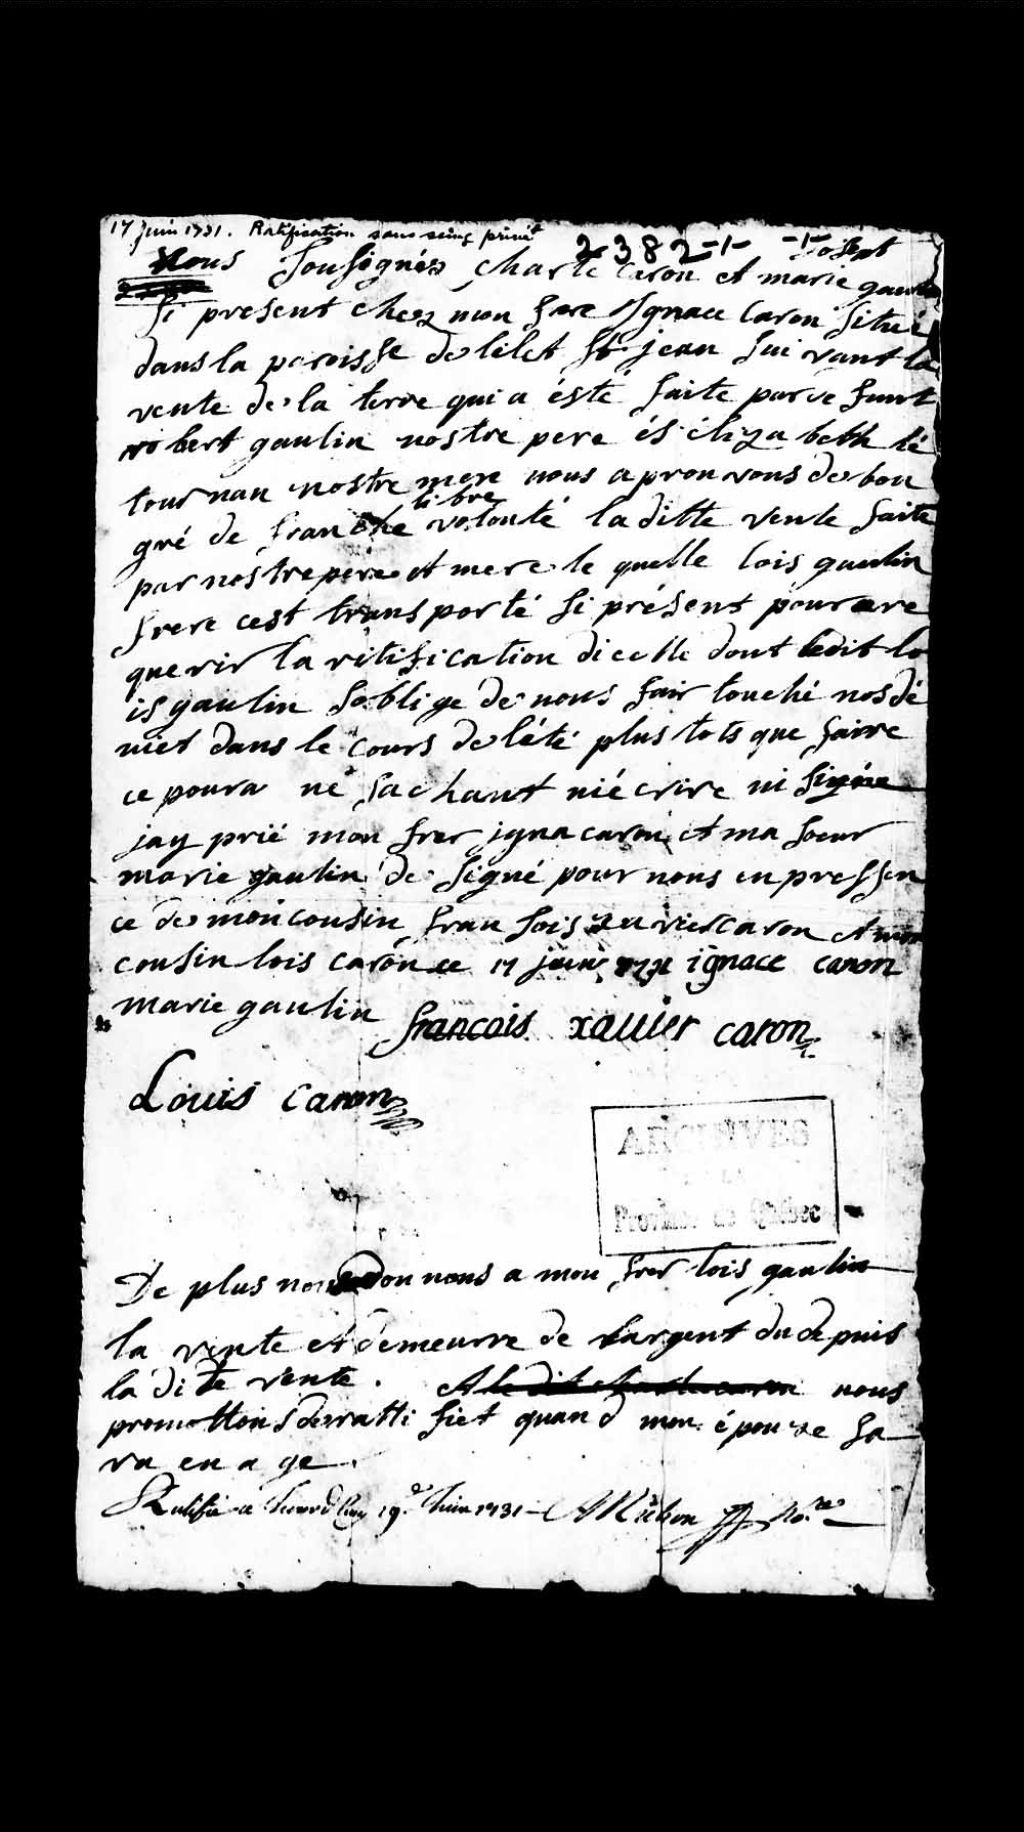 17 Juin 1731. Ratification sous seing privé
2382-1- -1-Joseph
Nous Sousignés charle caron et marie gaulin
si present chez mon frere Ignace Caron situé
dans la paroisse de lilet st jean suivant la
vente de la terre qui a ésté faite par
robert gaulin nostre pere és élizabeth lé
tournau nostre mere nous aprouvons de bon
libre
gré de franche volonté laditte vente faite
par nostre pere et mere le quelle lois gaulin
frere cest transporté si présent pour
querir la ritification dicelle dont ledit lo
is gaulin soblige de nous fair touché nos dé
niet dans le cours de lété plus tots que faire
ce poura ne sachant niécrire ni signé
jay prié mon frer igna caron et ma soeur
marie gaulin de signé pour nous en pressen
ce de mon cousin fransois caron et mon
cousin lois caron ce 17 juin 1731 ignace caron
marie gaulin francois xauier caron
Louis caron
ARCHIVES
Province de Québec
De plus nous donnons a mon frer lois gaulin
la vente et demeurre de largent du depuis
la dite vente. nous
promettons de rattifiet quand mon épouze sa
ra en age.
Ratifié a 19e Juin 1731 - AMichon No.re